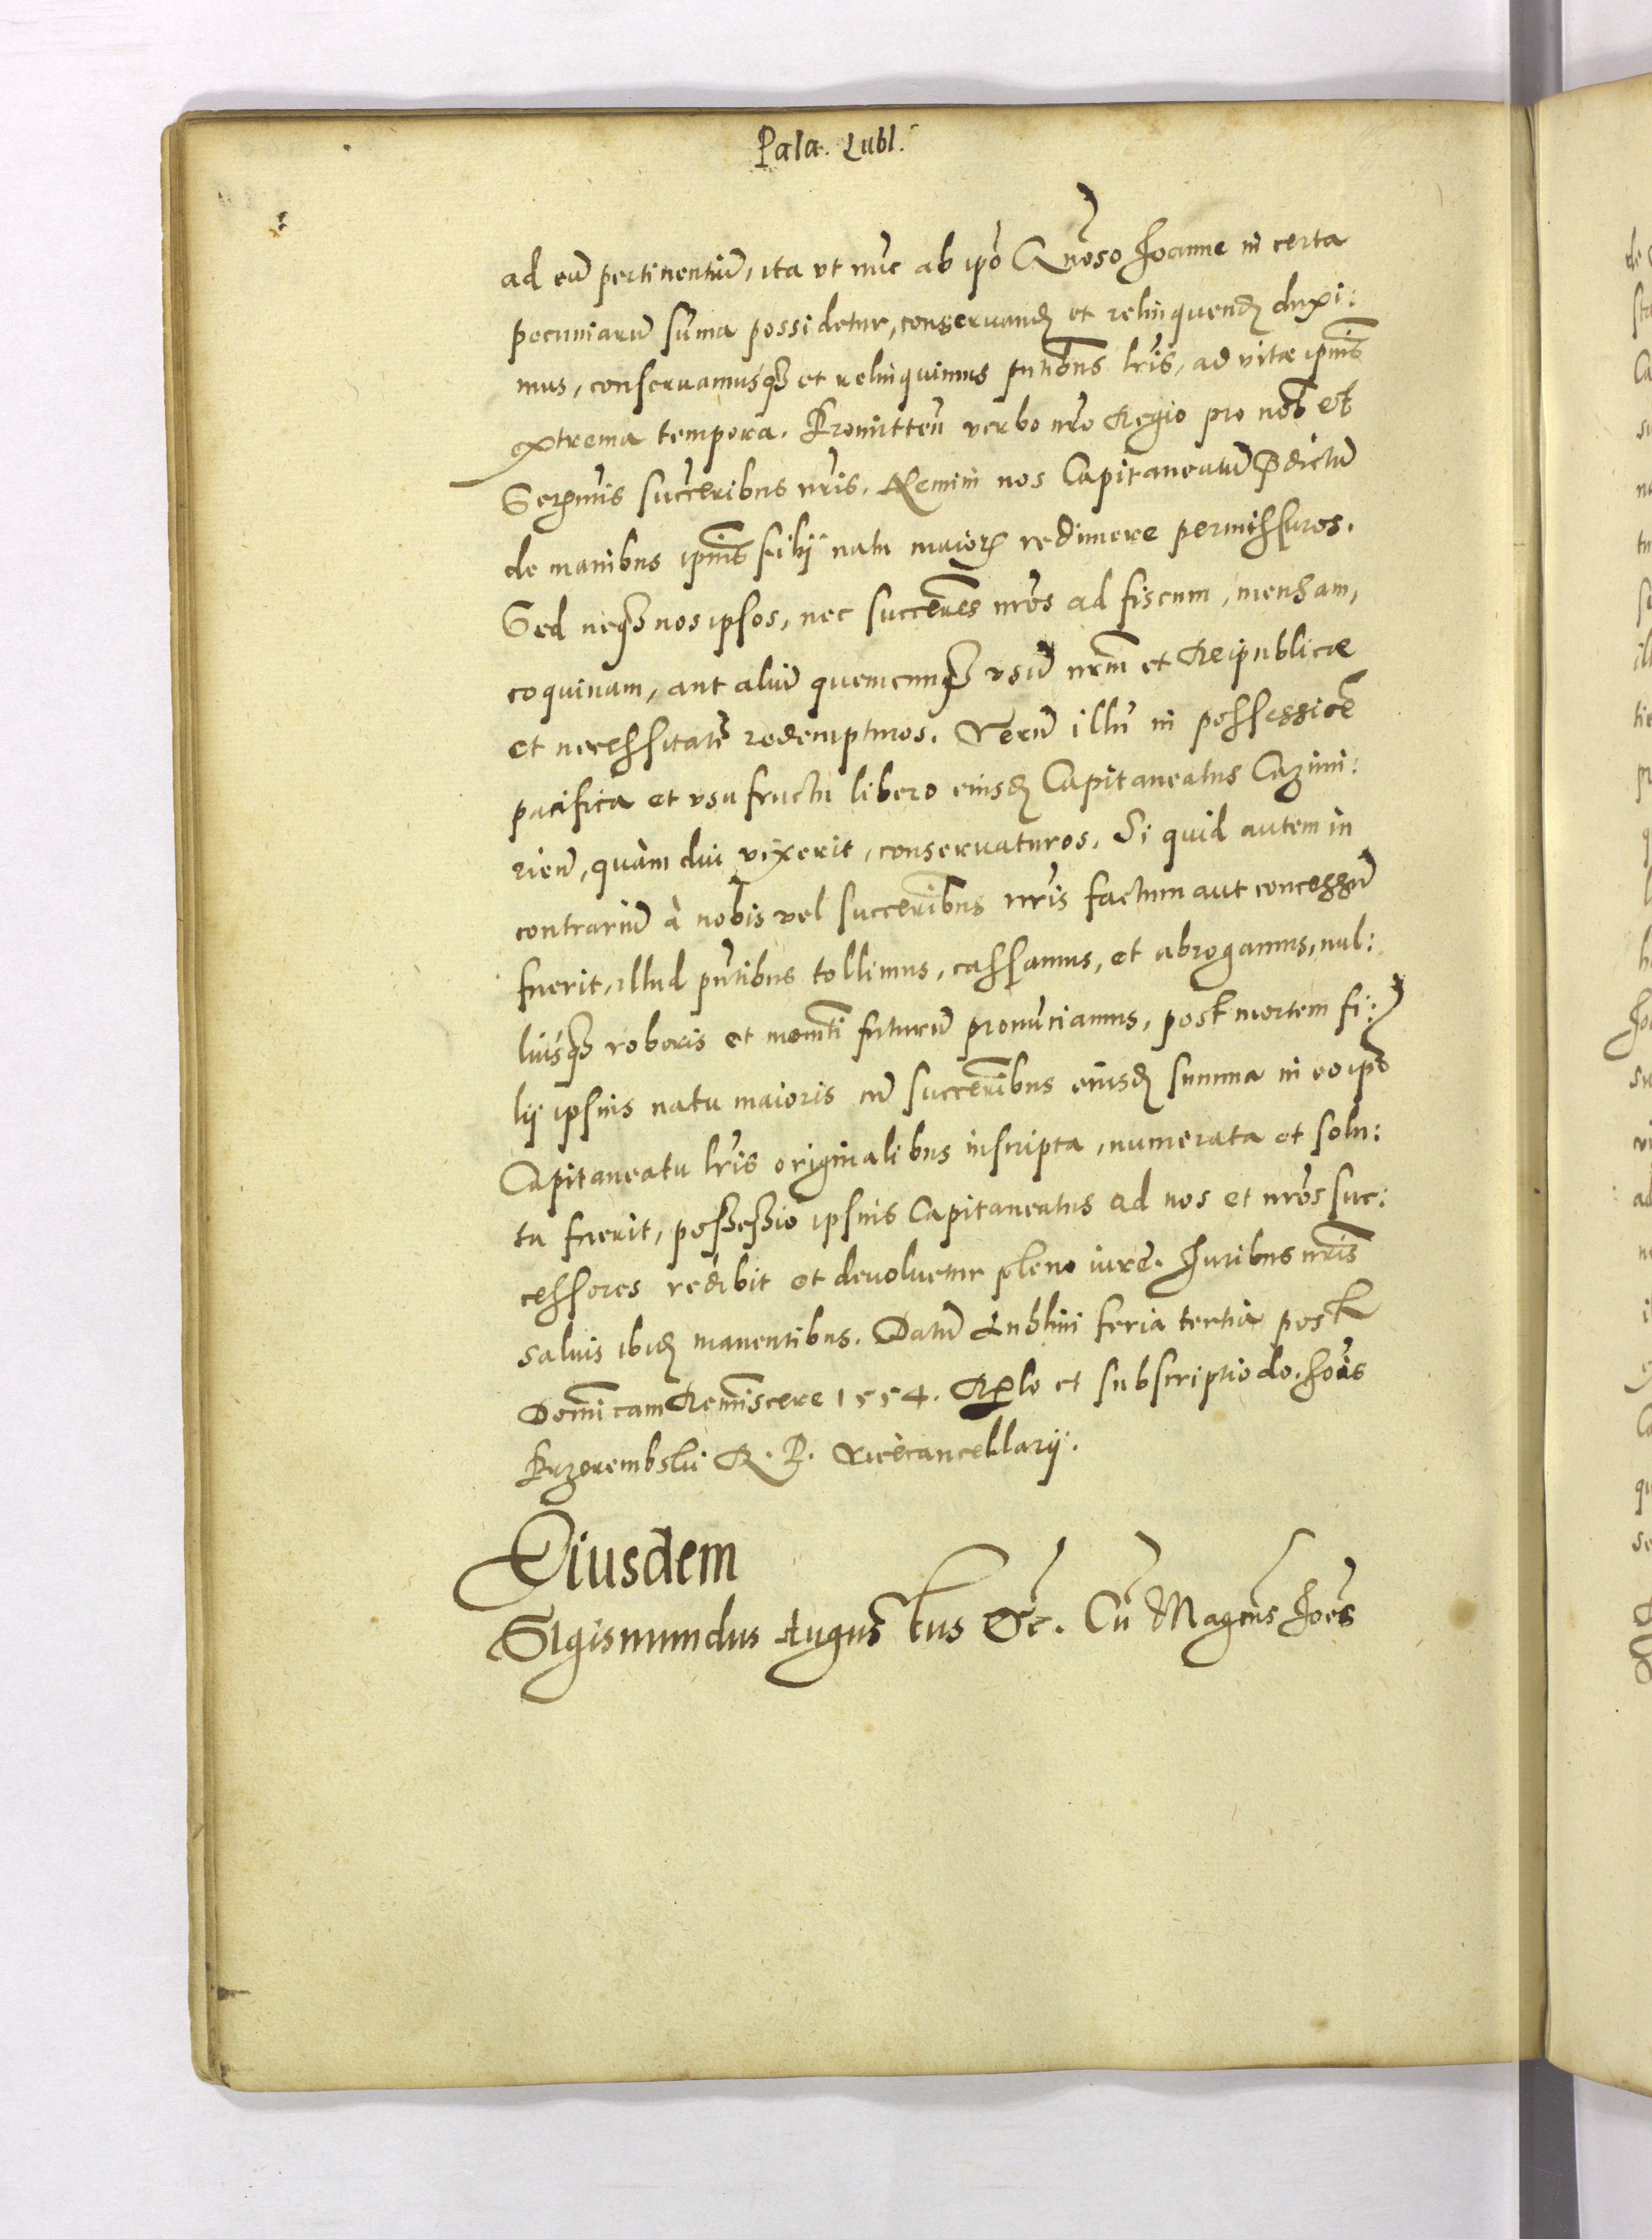 Pala. Lubl.
ad eū pertinentiū, ita ut nūc ab ip̄o Gn̄oso Joanne in certa
pecuniarū sūma possidetur, conseruand et relinquend duxi:
mus, conseruamusq et relinquimus pn̄tibus lr̄is, ad vitæ ipīus
extrema tempora. Promitten̄ verbo nr̄o Regio pro nob et
Serm̄is succeribus nr̄is. Neminī nos Capitaneatū p̄dictū
de manibus ipīus filij natu maior redimere permissuros.
Sed neq nos ipsos, nec succeres nr̄os ad fiscum, mensam,
coquinam, aut aliū quemcunq usū nr̄m et Reipublicæ
et necessitatē redempturos. Verū illū in possessioē
pacifica et usufructu libero eiusd Capitaneatus Cazimi:
rien̄, quàm diu vixerit, conseruaturos. Si quid autem in
contrariū à nobis vel succeribus nr̄is factum aut concessū
fuerit, illud pn̄tibus tollimus, cassamus, et abrogamus, nul:
liusq roboris et momēti futurū pronūciamus, post mortem fi:
lij ipsius natu maioris cū succeribus eiusd summa in eo ip̄o
Capitaneatu lr̄is originalibus inscripta, numerata et solu:
ta fuerit, possessio ipsius Capitaneatus ad nos et nr̄os suc:
cessores redibit et deuoluetur pleno iure. Juribus nr̄is
saluis ibid manentibus. Datū Lublini feria tertia post
Domīcam Remīscere 1554. Rela̅o et subscriptio do. Joāis
Przerembskii R. P. Vicecancellarij.
Eiusdem
Sigismundus Augustus Etc. Cū Magcūs Joēs